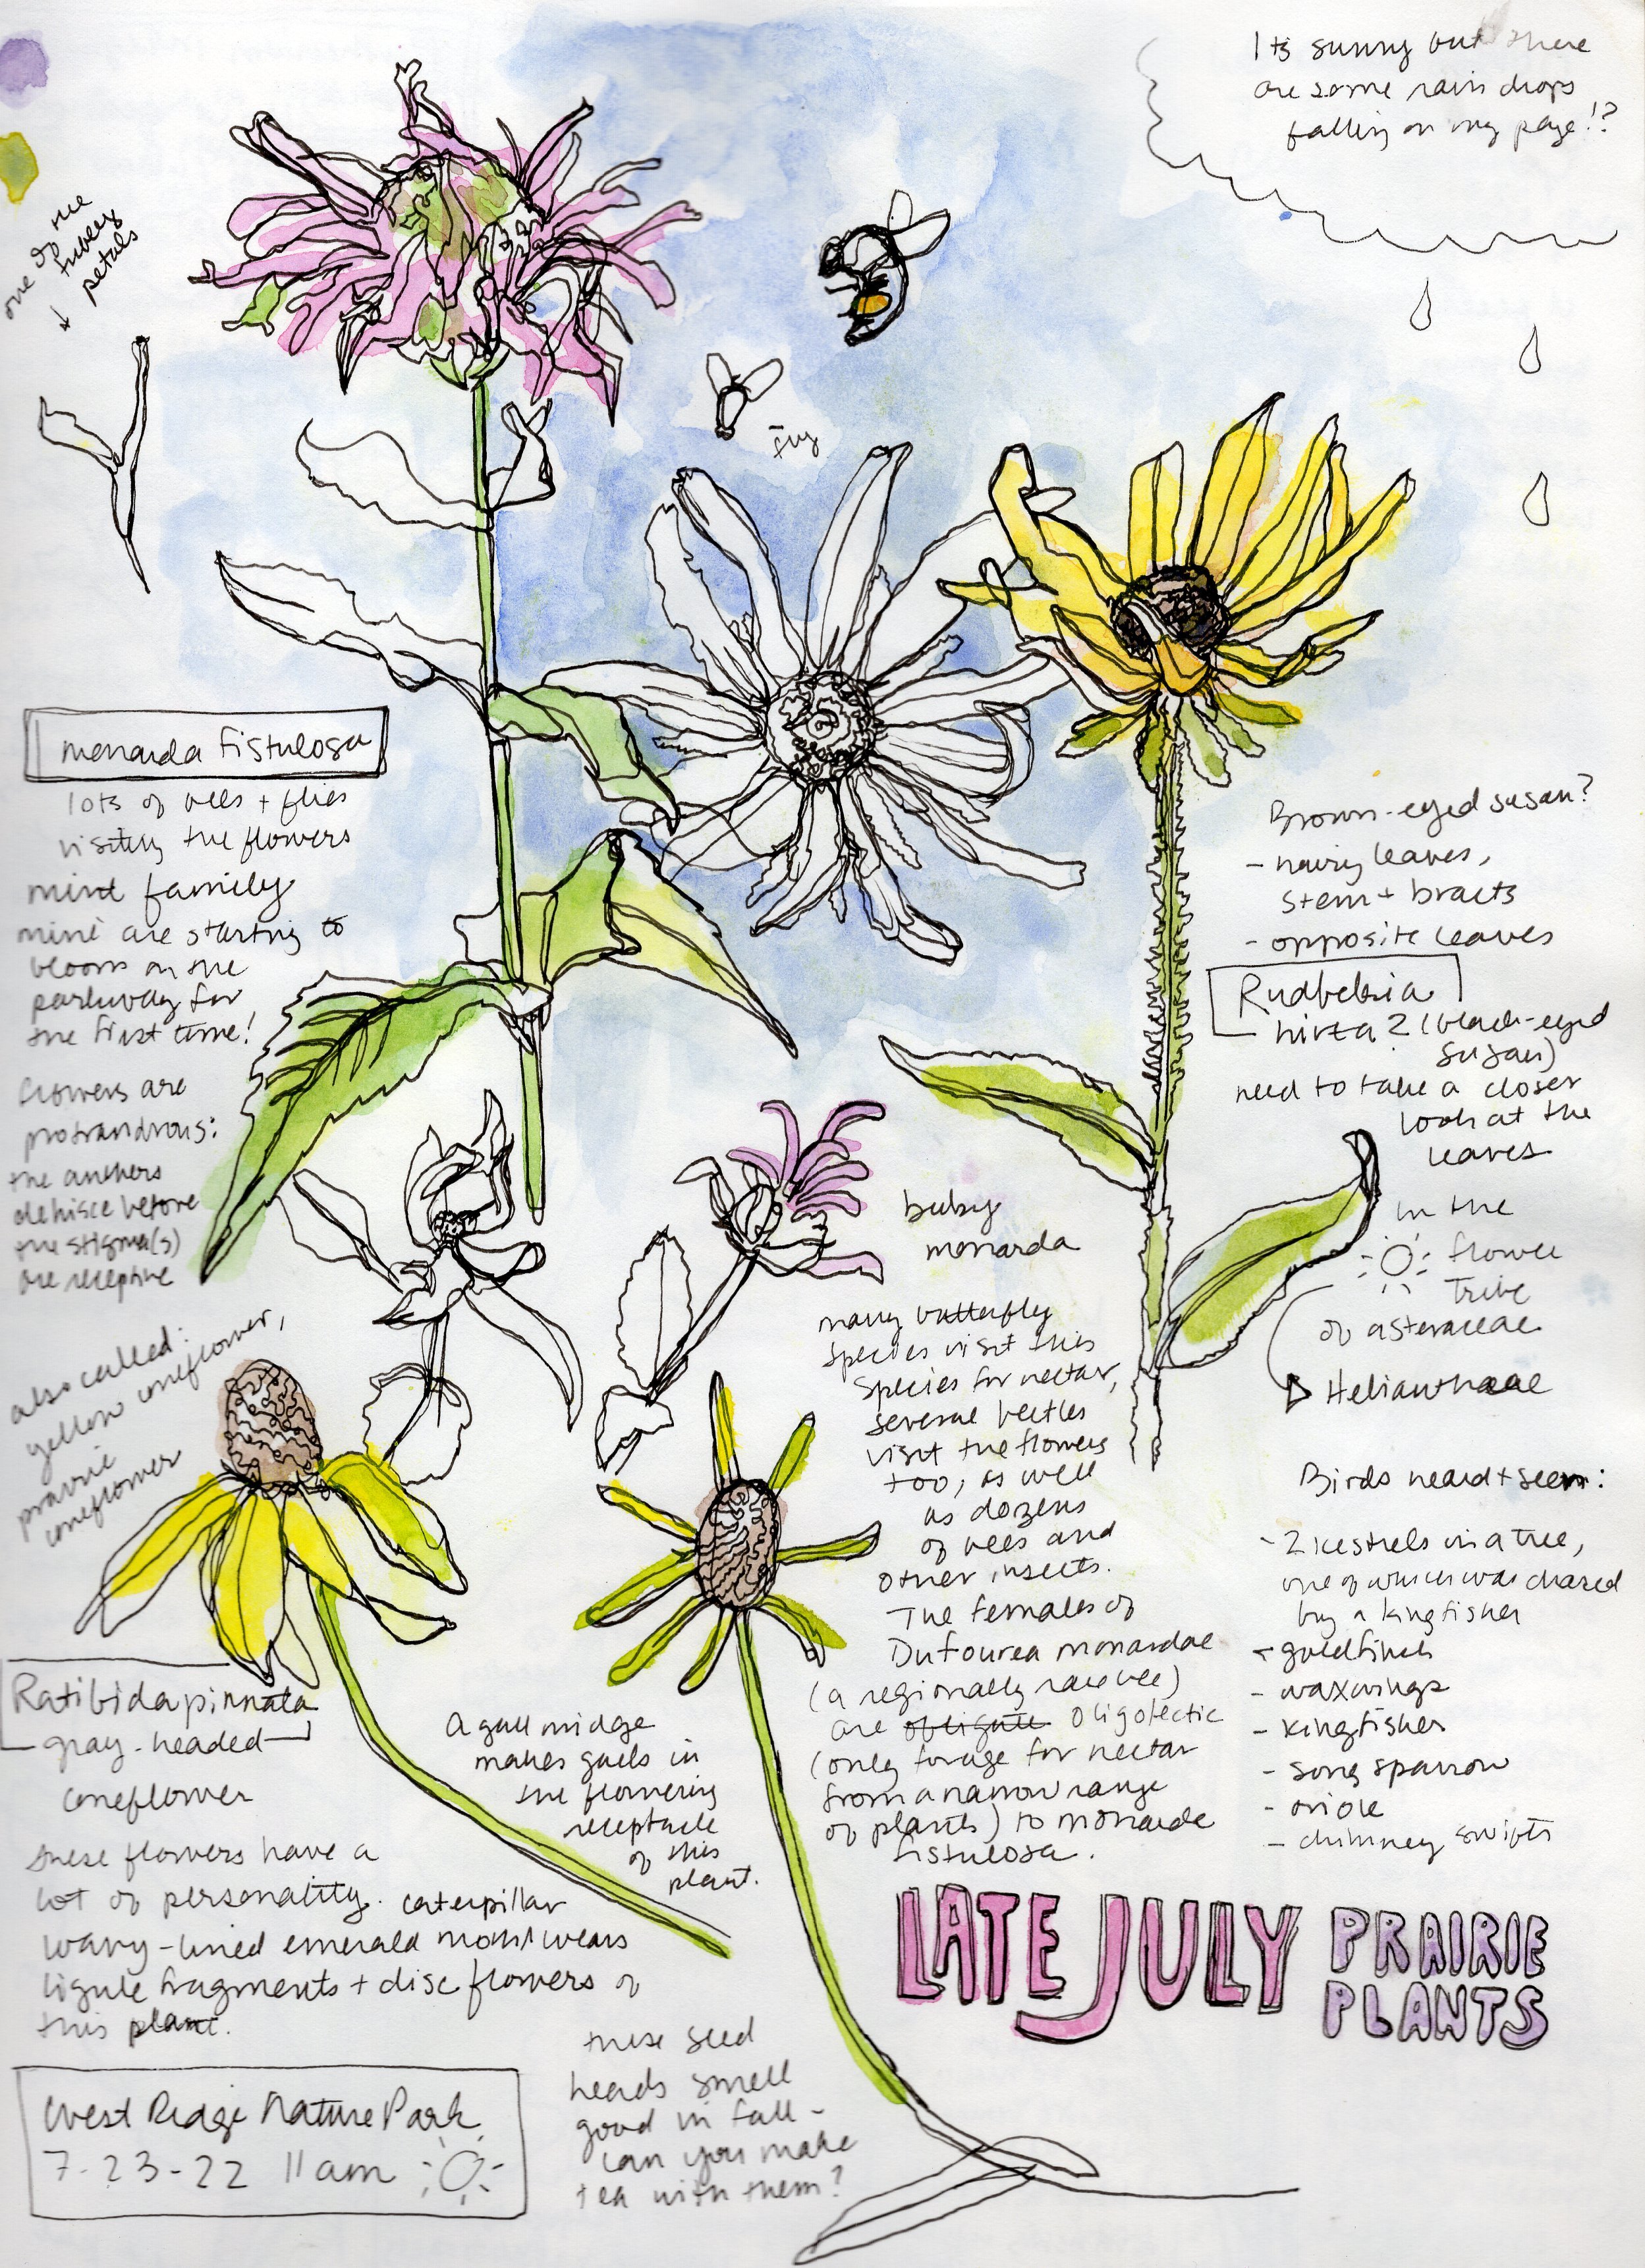 Its sunny but there
are some rain drops
falling on my page!?
one of the
tubey
petals
fly
monarda fistulosa
lots of bees + flies
visiting the flowers
mint family
mine are starting to
bloom on the
parkway for
the first time!
flowers are
protrandrous:
the anthers
dehisce before
the stigma(s)
are receptive
Brown-eyed susan?
- hairy leaves,
stem + bracts
- opposite leaves
Rudbekia
hirta ? (black-eyed
susan)
need to take a closer
look at the
leaves
in the
flower
Tribe
of asteraceae
Heliantheae
baby
monarda
many butterfly
species visit this
species for nectar,
several beetles
visit the flowers
too, as well
as dozens
of bees and
other insects.
The females of
Dufourea monardae
(a regionally rare bee)
are obligate oligolectic
(only forage for nectar
from a narrow range
of plants) to monarda
fistulosa.
also called:
yellow coneflower,
prairie
coneflower
Ratibida pinnata
gray-headed
coneflower
these flowers have a
lot of personality. caterpillar
wavy-lined emerald moth wears
ligule fragments + disc flowers of
this plant.
A gall midge
makes galls in
the flowering
receptacle
of this
plant.
Birds heard + seen:
- 2 kestrels in a tree,
one of which was chased
by a kingfisher
- goldfinch
- waxwings
- kingfisher
- song sparrow
- oriole
- chimney swifts
LATE JULY PRAIRIE
PLANTS
these seed
heads smell
good in fall -
can you make
tea with them?
West Ridge Nature Park
7-23-22 11am